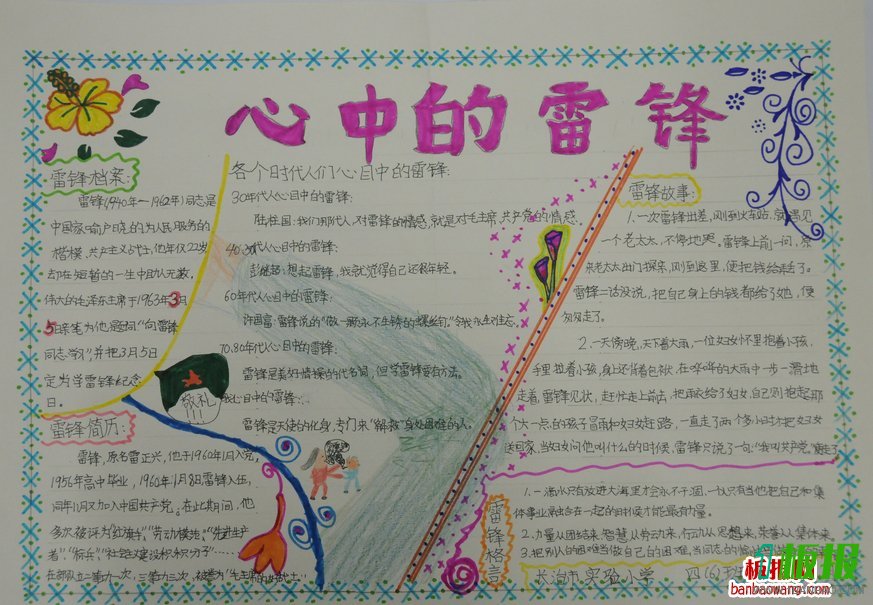 心中的雷锋
雷锋档案:
雷锋(1940年—1962年)同志,是
中国家喻户晓的为人民服务的
楷模,共产主义战士,他年仅22岁
却在短暂的一生中助人无数。
伟大的毛泽东主席于1963年3月
5日亲笔为他题词“向雷锋
同志学习”并把3月5日
定为学雷锋纪念
日。
敬礼
雷锋简历:
雷锋,原名雷正兴,他于1960年1月入党,
1956年高中毕业,1960年1月8日雷锋入伍,
同年11月又加入中国共产党。在此期间,他
多次被评为“红旗手”、“劳动模范”、“先进生产
者”、“标兵”、“社会主义建设积极分子”……
各个时代人们心目中的雷锋:
30年代人心目中的雷锋:
陆桂国:我们那代人,对雷锋的情感,就是对毛主席、共产党的情感
40、50年代人心目中的雷锋:
想起雷锋,我就觉得自己还很年轻。
60年代人心目中的雷锋:
许国富:雷锋说的“做一颗永不生锈的螺丝钉”令我永生难忘。
70、80年代人心目中的雷锋:
雷锋是美好情操的代名词,但学雷锋要有方法。
我心目中的雷锋:
雷锋是天使的化身,专门来“解救”身处困难的人。
雷锋故事:
1.一次雷锋出差,刚到火车站,就遇见
一个老太太,不停地哭。雷锋上前一问,原
来老太太出门探亲,刚到这里,便把钱给丢了。
雷锋二话没说,把自己身上的钱都给了她,便
匆匆走了。
2.一天傍晚,天下着大雨,一位妇女怀里抱着小孩,
手里拉着小孩,身上还背着包袱,在哗哗的大雨中一步一滑地
走着,雷锋见状,赶忙走上前去,把雨衣给了妇女,自己则抱起那
个大一点的孩子冒雨和妇女赶路,一直走了两个多小时才把妇女
送回家,当妇女问他叫什么的时候,雷锋只说了一句:“我叫共产党。”便走了
雷锋格言
1.一滴水只有放进大海里才会永不干涸,一个人只有当他把自己和集
体事业融合在一起的时候才能最有力量。
2.力量从团结来,智慧从劳动来,行动从思想来,荣誉从集体来。
3.把别人的困难当做自己的困难,当同志的
长治市实验小学 四(6)班
板报
板报网
banbaowang.com